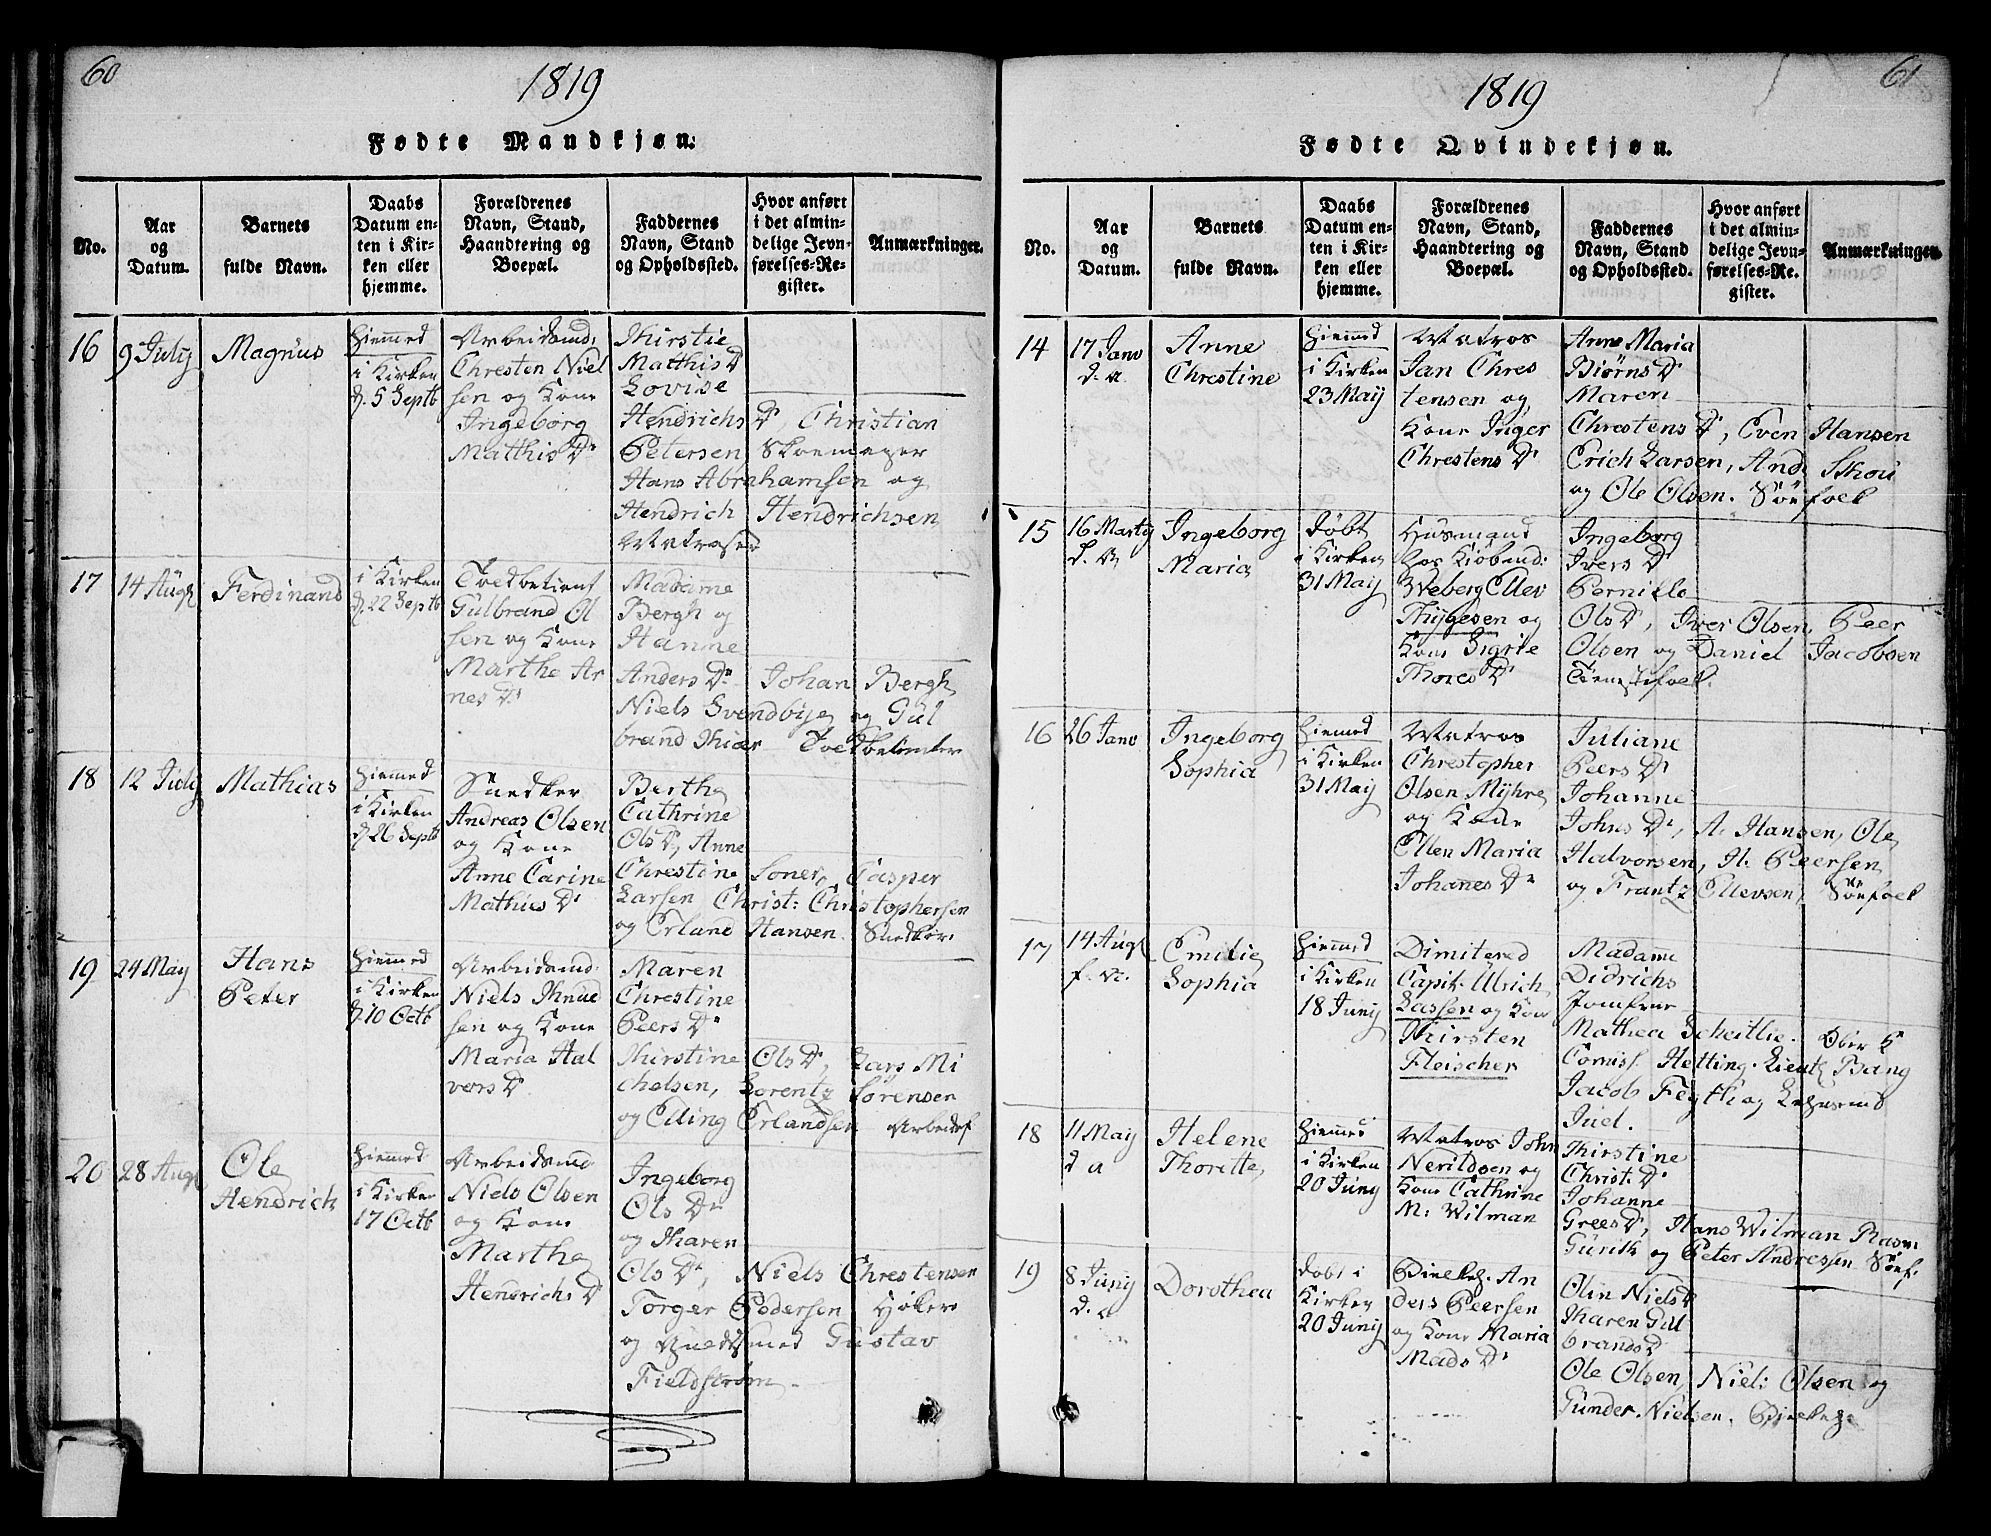 60
1819
Fødte Mandkjøn:
No.
Aar
og
Datum.
Barnets
fulde Navn.
Daabs
Datum en-
ten i Kir-
ken eller
hjemme.
Forældrenes
Navn, Stand,
Haandtering og
Boepæl.
Faddernes
Navn, Stand
og Opholdssted.
Hvor anført
i det almin-
delige Jevn-
førelses-Re-
gister.
Anmærkninger.
16
9 July
Magnus
Hiemmed
i Kirken
d. 5 Septb
Arbeidsmd.
Chresten Niel
sen og Kone
Ingeborg
Matthis D
Kirstie
Matthis D
Lovise
Hendrichs D, Christian
Petersen Skoemager
Hans Abrahamsen og
Hendrich Hendrichsen
Matroser
17
14 Augt
Ferdinand
i Kirken
d. 22 Septb
Gulbrand Ol
sen og Kone
Marthe Ar
nes D
Madame
Bergh og
Hanne
Anders D Johan Bergh
Niels Svendbye og Gul
brand
18
12 July
Mathias
Hiemmed
i Kirken
d 26 Septb
Snedker
Andreas Olsen
og Kone
Anne Carine
Mathies D
Berthe
Cathrine
Ols D, Anne
Chrestine Soner, Casper
Larsen Christ: Christophersen
og Erland Hansen Snedker
19
24 May
Hans
Peter
Hiemmed
i Kirken
d. 10 Octb
Arbeidsmd.
Niels Knud
sen og Kone
Maria Hal
vors D
Maren
Chrestine
Peers D
Kirstine Ols D, Lars Mi
chelsen, Lorentz Sørensen
og Elling Erlandsen Arbeidsf
20
28 Augt
Ole
Hendrich
Hiemmed
i Kirken
17 Octb
Arbeidsmd
Niels Olsen
og Kone
Marthe
Hendrichs D
Ingeborg
Ols D
og Karen
Ols D, Niels Chrestensen
Torger Pedersen Høker
og Guldsmed Gustav
Fieldstrøm.
61
1819
Fødte Qvindekjøn.
No.
Aar
og
Datum.
Barnets
fulde Navn.
Daabs
Datum en-
ten i Kir-
ken eller
hjemme.
Forældrenes
Navn, Stand,
Haandtering og
Boepæl.
Faddernes
Navn, Stand
og Opholdssted.
Hvor anført
i det almin-
delige Jevn-
førelses-Re-
gister.
Anmærkninger.
14
17 Janv
d. a.
Anne
Chrestine
Hiemmed
i Kirken
23 May
Matros
Jan Chres
tensen og
Kone Inger
Chrestens D
Anne Maria
Biørns D
Maren
Chrestens D, Even Hansen
Erich Larsen, And. Skou
og Ole Olsen. Søefolk
15
16 Marty
Ingeborg
Maria
Døbt
i Kirken
31 May
Husmand
hos Kiøbmd:
Weberg Ellev
Thygesen og
Kone Sigrie
Thores D
Ingeborg
Ivers D
Pernille
Ols D, Iver Olsen, Peer
Olsen og Daniel Jacobsen
Tienstfolk.
16
26 Janv
Ingeborg
Sophia
Hiemmed
i Kirken
31 May
Matros
Chrestopher
Olsen Myhre
og Kone
Ellen Maria
Johanes D
Juliane
Peers D
Johanne
Johns D, A. Hansen, Ole
Halvorsen, H. Peersen
og Frantz Ellevsen, Søefolk
17
14 Augt
Emilie
Sophia
Hiemmed
i Kirken
18 Juny
Dimitered
Capit. Ulrich
Lassen og Kone
Kirsten
Fleischer
Madame
Didrichs
Jomfrue
Mathea Scheitlie. Ober K
Comiss. Hetting. Lieut. Bang
Jacob Feyth og
Juel.
18
11 May
d a
Helene
Thorette
Hiemmed
i Kirken
20 Juny
Matros John
Nerildsen og
Kone Cathrine
M: Wilman
Kirstine
Christ. D
Johanne
Grees D, Hans Wilman Rasm
Gurik og Peter Andressen Søef.
19
8 Juny
d. a
Dorothea
Døbt i
Kirken
20 Juny
An
ders Peersen
og Kone Maria
Mads D
Olin Niels D
Karen Gul
brands D
Ole Olsen, Niels Olsen og
Gunder Nielsen.